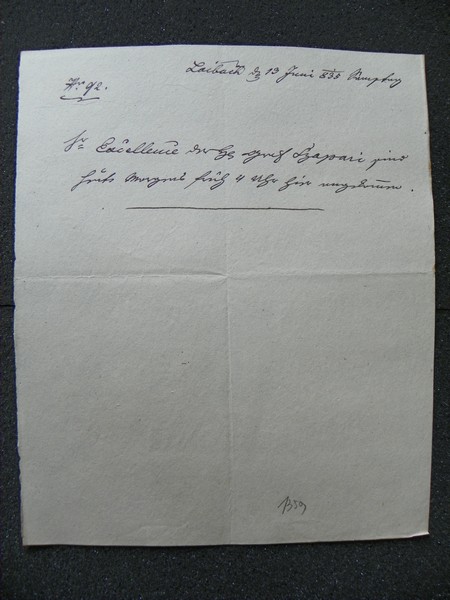 Laibach d 13 Juni 855
Nr 92.
Sr Excellence der H Graf Szapari sind
heute Morgens früh 4 Uhr hier angekommen.
1859